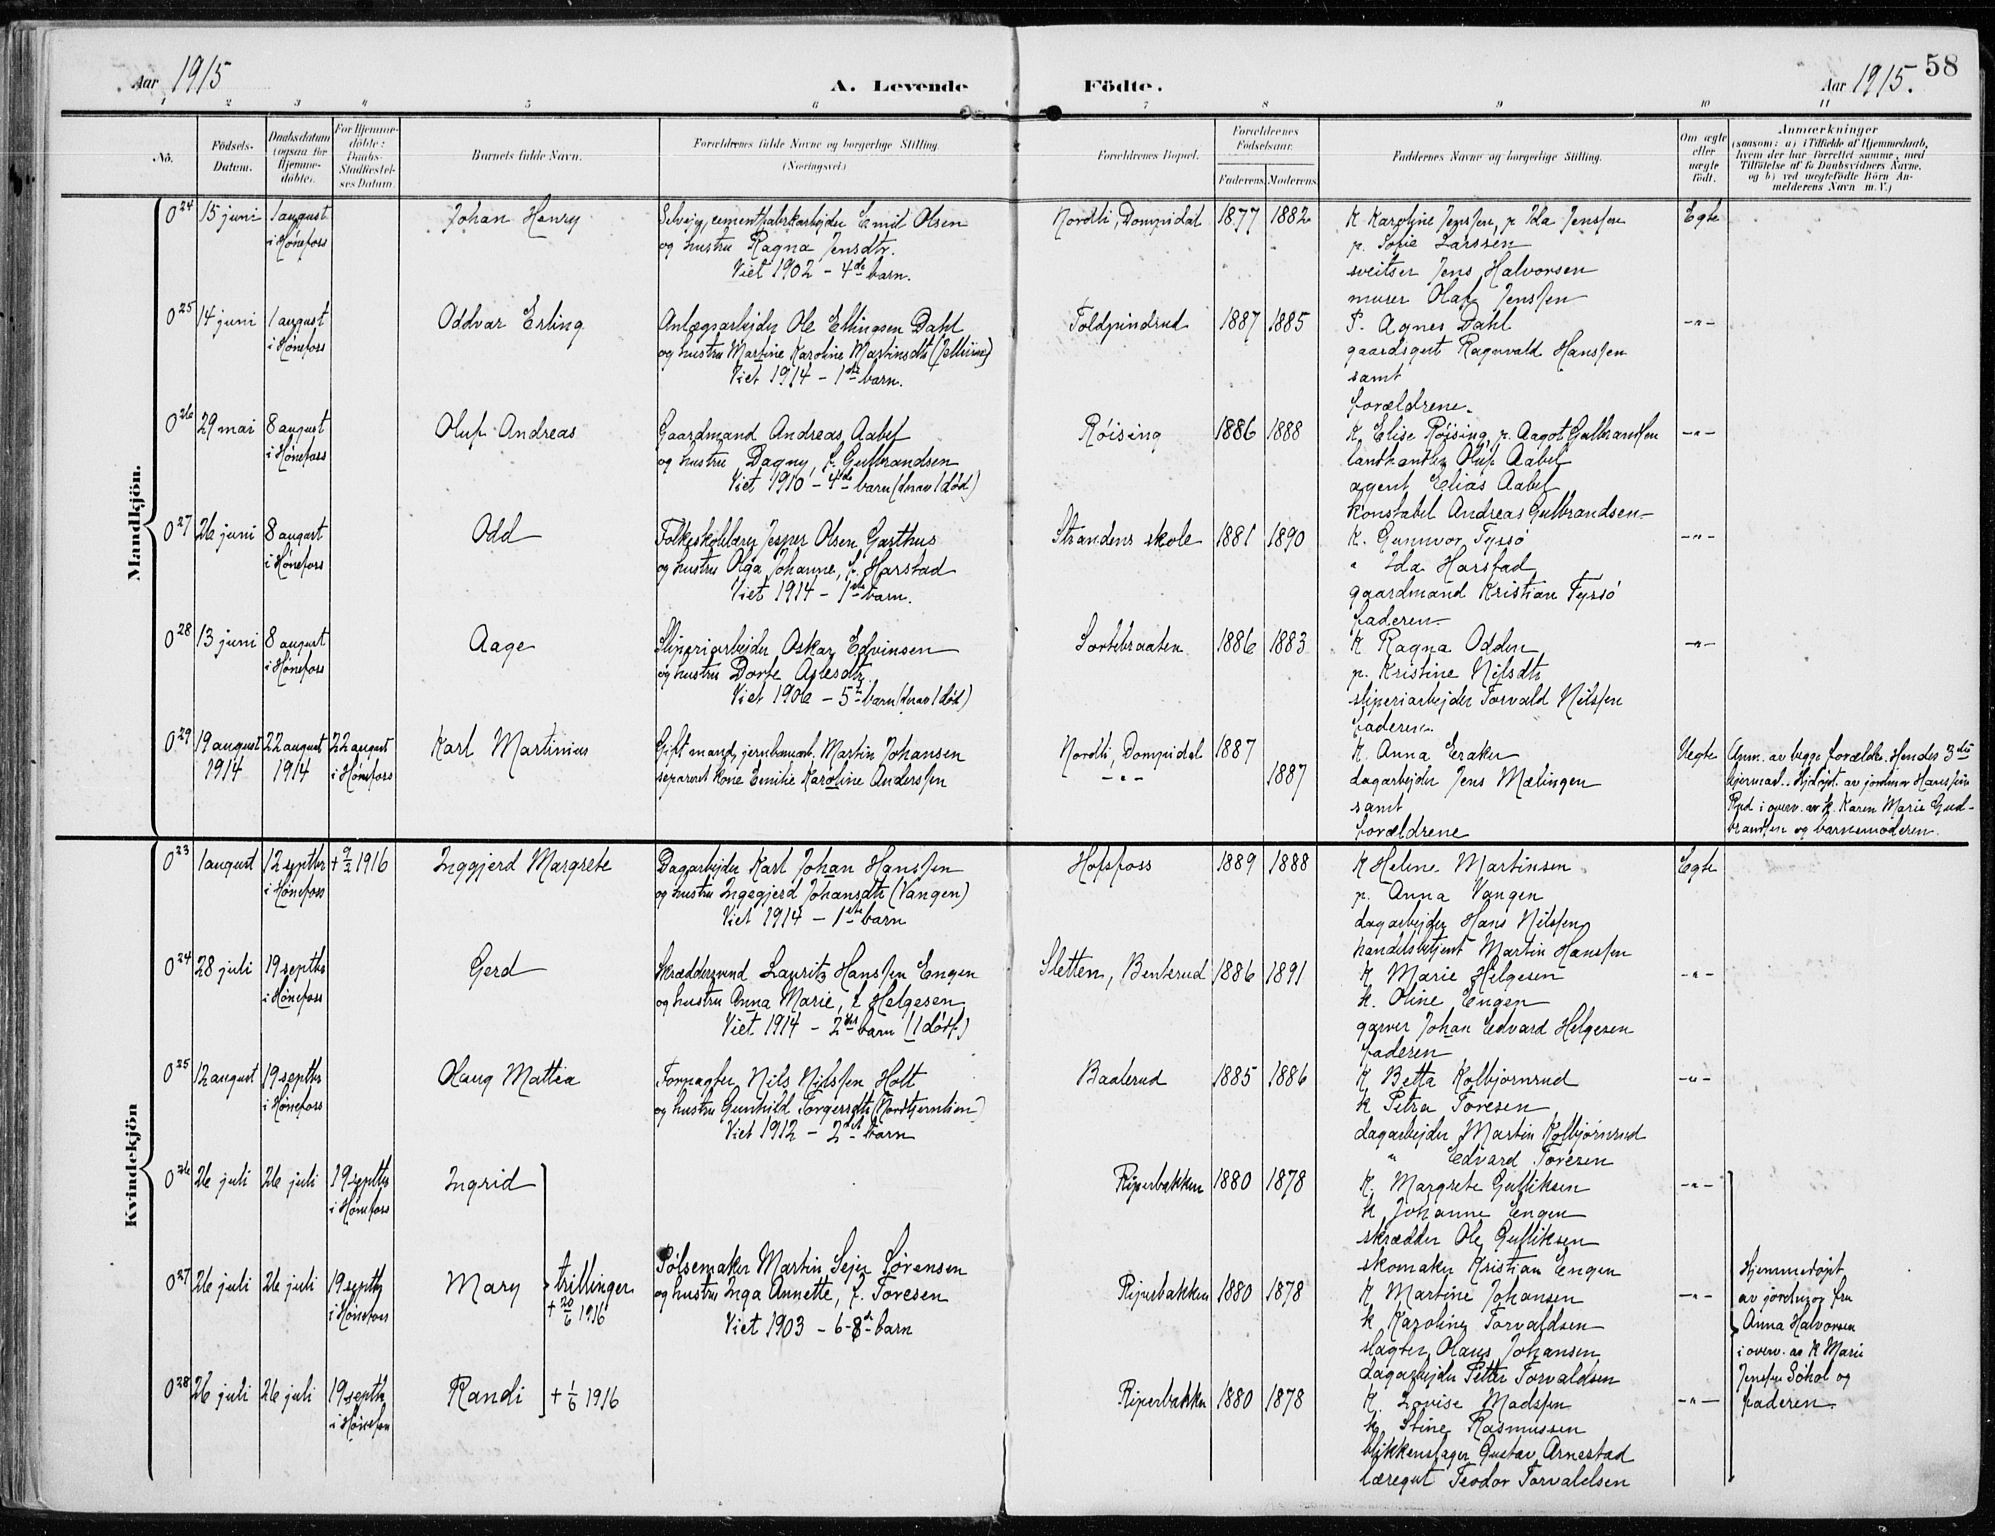 58
Aar 1915 A. Levende Födte. Aar 1915.
1 2 3 4 5 6 7 8 9 10 11
No. Födsels-Datum. Daabsdatum (ogsaa for Hjemme-döbte). For Hjemme-döbte: Daabs-Stadfæstel-ses Datum. Barnets fulde Navn. Forældrenes fulde Navne og borgerlige Stilling. (Næringsvei.) Forældrenes Bopæl. Forældrenes Födselsaar. Faderens. Moderens. Faddernes Navne og borgerlige Stilling. Om ægte eller uægte født. Anmærkninger
(saasom: a) i Tilfælde af Hjemmedaab,
hvem der har forrettet samme, med
Tilföielse af to Daabsvidners Navne,
og b) ved uægtefödte Börn An-
melderens Navn m. V.)
Mandkjön.
24 15 juni 1 august i Hønefoss Johan Henry
Selveig, cementfabrikarbejder Emil Olsen
og hustru Ragna Jensdtr.
Viet 1902 - 4de barn.
Nordli, Dompidal 1877 1882
K Karoline Jenssen, p Ida Jenssen
p. Sofie Larssen
sveitser Jens Halvorsen
murer Olaf Jenssen
Egte
25 14 juni 1 august i Hønefoss Oddvar Erling
Anlægsarbejder Ole Ellingsen Dahl
og hustru Martine Karoline Martinsdtr
Viet 1914 - 1ste barn.
1887 1885
P. Agnes Dahl
gaardsgut Ragnvald Hanssen
samt
forældrene.
-"-
26 29 mai 8 august i Hønefoss Oluf Andreas
Gaardmand Andreas Aabel
og hustru Dagny, f. Gulbrandsen
Viet 1910 - 4de barn (derav 1 død)
Røising 1886 1888
K. Elise Røising, p. Aagot Gulbrandsen
landhandler Oluf Aabel
agent Elias Aabel
konstabel Andreas Gulbrandsen
-"-
27 26 juni 8 august i Hønefoss Odd
Folkeskolelærer Jesper Olsen Garthus
og hustru Olga Johanne, f. Harstad
Viet 1914 - 1ste barn.
Strandens skole 1881 1890
K. Gunnvor Fyssø
" Ida Harstad
gaardmand Kristian Fyssø
faderen
-"-
28 13 juni 8 august i Hønefoss Aage
Sliperiarbejder Oskar Edvinsen
og hustru Dorte Aslesdtr.
Viet 1906 - 5te barn (derav 1 død)
Sortebraaten 1886 1883
K Ragna Odden
p. Kristine Nilsdtr
sliperiarbejder Torvald Nilssen
faderen
-"-
29 19 august 1914 22 august 1914 22 august i Hønefoss Karl Martinius
Gift mand, jernbanearb. Martin Johansen
separeret kone Emilie Karoline Anderssen
Nordli, Dompidal 1887
-"- 1887
K. Anna Eraker
dagarbejder Jens Mælingen
samt
forældrene
Uegte
Anm. av begge forældre. Hendes 3die
Hjdøpt av jordmor Hanssine
Rud i overv. av k. Karen Marie Gud-
brandsen og barnemoderen.
Kvindekjön
23 1 august 12 septbr i Hønefoss + 9/2 1916 Inggjerd Margrete
Dagarbejder Karl Johan Hanssen
og hustru Ingegjerd Johansdtr (Vangen)
Viet 1914 - 1ste barn
Hofsfoss 1889 1888
K Helene Martinsen
p. Anna Vangen
dagarbejder Hans Nilssen
handelsbetjent Martin Hanssen
Egte
24 28 juli 19 septbr i Hønefoss Gerd
Skræddersvend Lauritz Hanssen Engen
og hustru Anna Marie, f. Helgesen
Viet 1914 - 2det barn (1 dødf.)
Sletten, Benterud 1886 1891
K Marie Helgesen
k. Oline Engen
garver Johan Edvard Helgesen
faderen
-"-
25 12 august 19 septbr i Hønefoss Olaug Mattea
Forpagter Nils Nilssen Holt
og hustru Gunhild Torgersdtr (Nordtjernlien)
Viet 1912 - 2det barn
Baalerud 1885 1886
K Betta Kolbjørnrud
k Petra Toresen
dagarbejder Martin Kolbjørnrud
" Edvard Toresen
-"-
26 26 juli 26 juli 19 septbr i Hønefoss Ingrid
Riperbakken 1880 1878
K. Margrete Gulliksen
k Johanne Engen
skrædder Ole Gulliksen
skomaker Kristian Engen
-"-
27 26 juli 26 juli 19 septbr i Hønefoss Mary trillinger
+ 20/6 1916
Pølsemaker Martin Sejer Sørensen
og hustru Inga Annette, f. Toresen
Viet 1903 - 6-8de barn
Riperbakken 1880 1878
K Martine Johansen
k Karoline Torvaldsen
slagter Olaus Johansen
dagarbejder Petter Torvaldsen
-"-
Hjemmedøpt
av jordmor fru
Anna Halvorsen
i overv. av K Marie
Jenssen Sohol og
faderen.
28 26 juli 26 juli 19 septbr i Hønefoss Randi + 1/6 1916
Riperbakken 1880 1878
K. Lovise Madssen
k Stine Rasmussen
blikkenslager Gustav Arnestad
læregut Teodor Torvaldsen
-"-